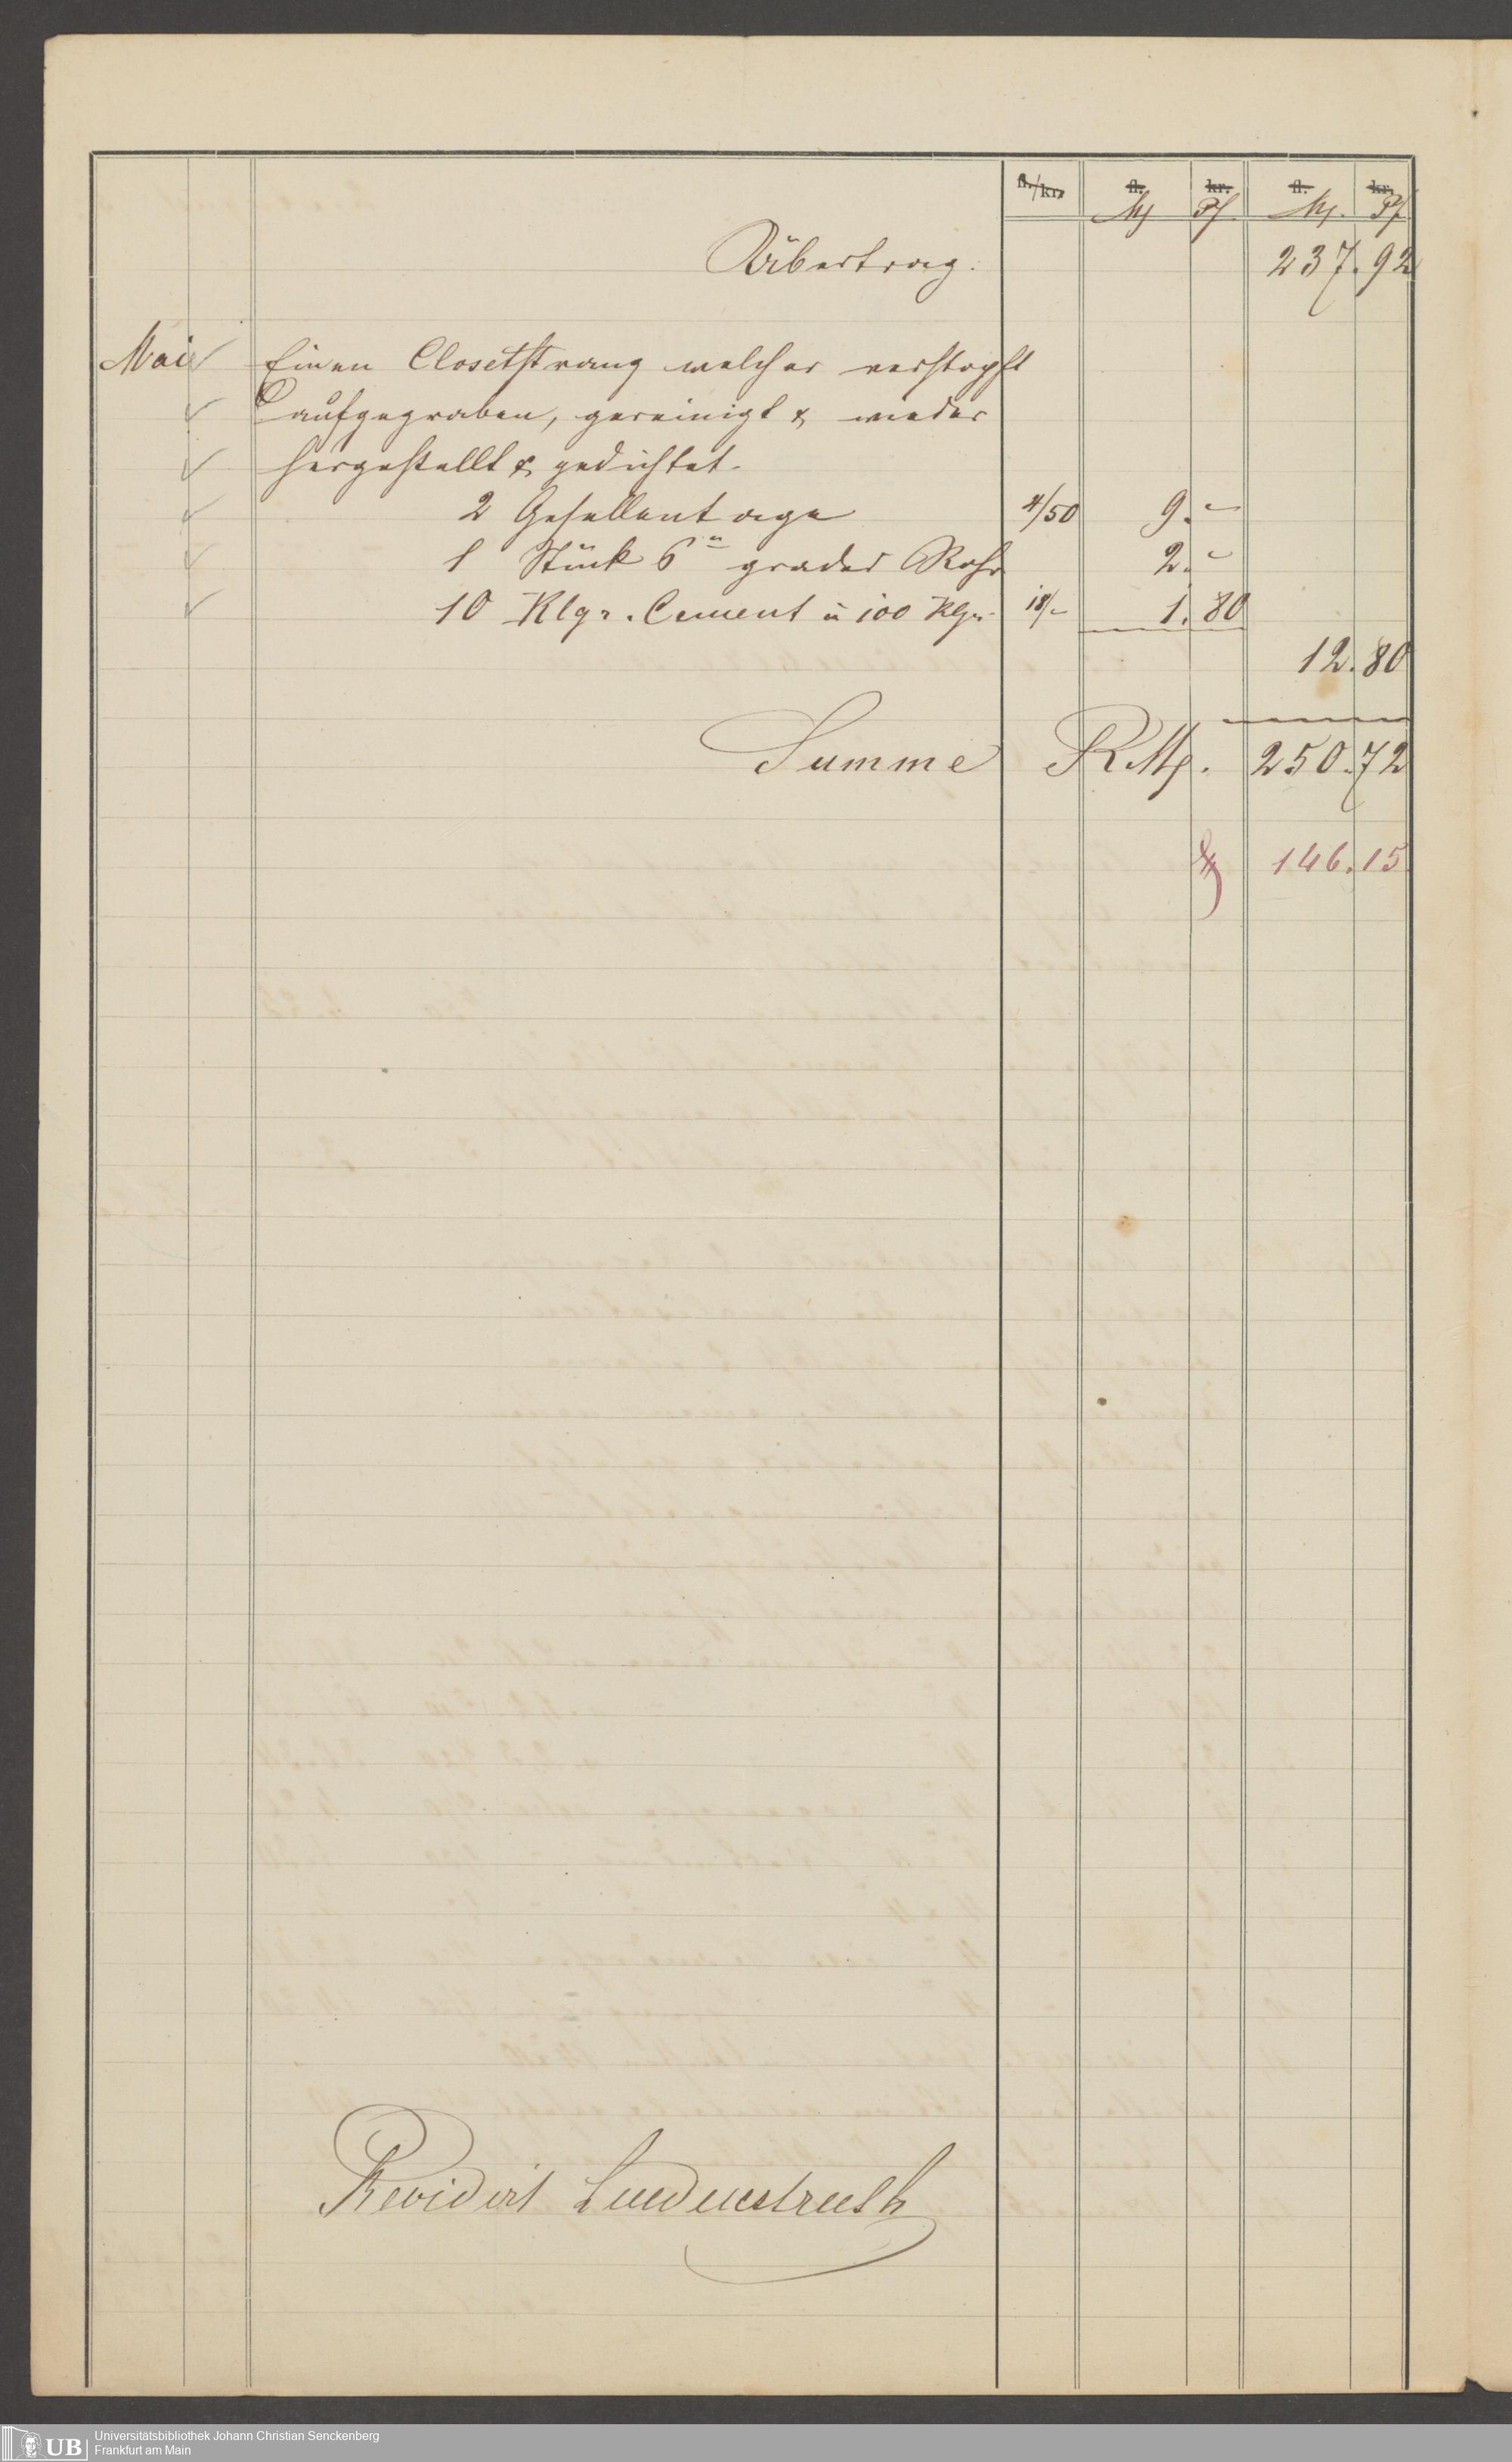 fl./kr. fl. kr. fl. kr.
M Pf M. Pf
Übertrag. 237. 92
Mai Einen Closetstrang welcher verstopft
aufgegraben, gereinigt & wieder
hergestellt & gedichtet.
2 Gesellentage 4/50 9. -
1 Stück 6" grades Rohr 2. -
10 Klgr. Cement à 100 Klgr. 18/- 1. 80
12. 80
Summe R.M. 250. 72
146. 15
Revidirt Luedenstruth
UB Universitätsbibliothek Johann Christian Senckenberg
Frankfurt am Main